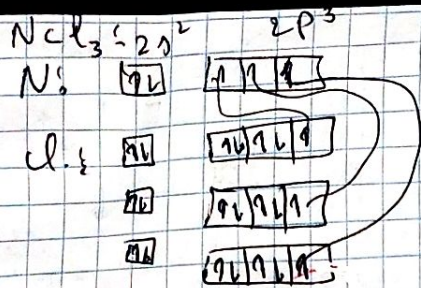 NCl₃: 2s² 2p³
N: ↑↓ ↑ ↑ ↑
Cl: ↑↓ ↑↓ ↑↓ ↑
↑↓ ↑↓ ↑↓ ↑
↑↓ ↑↓ ↑↓ ↑